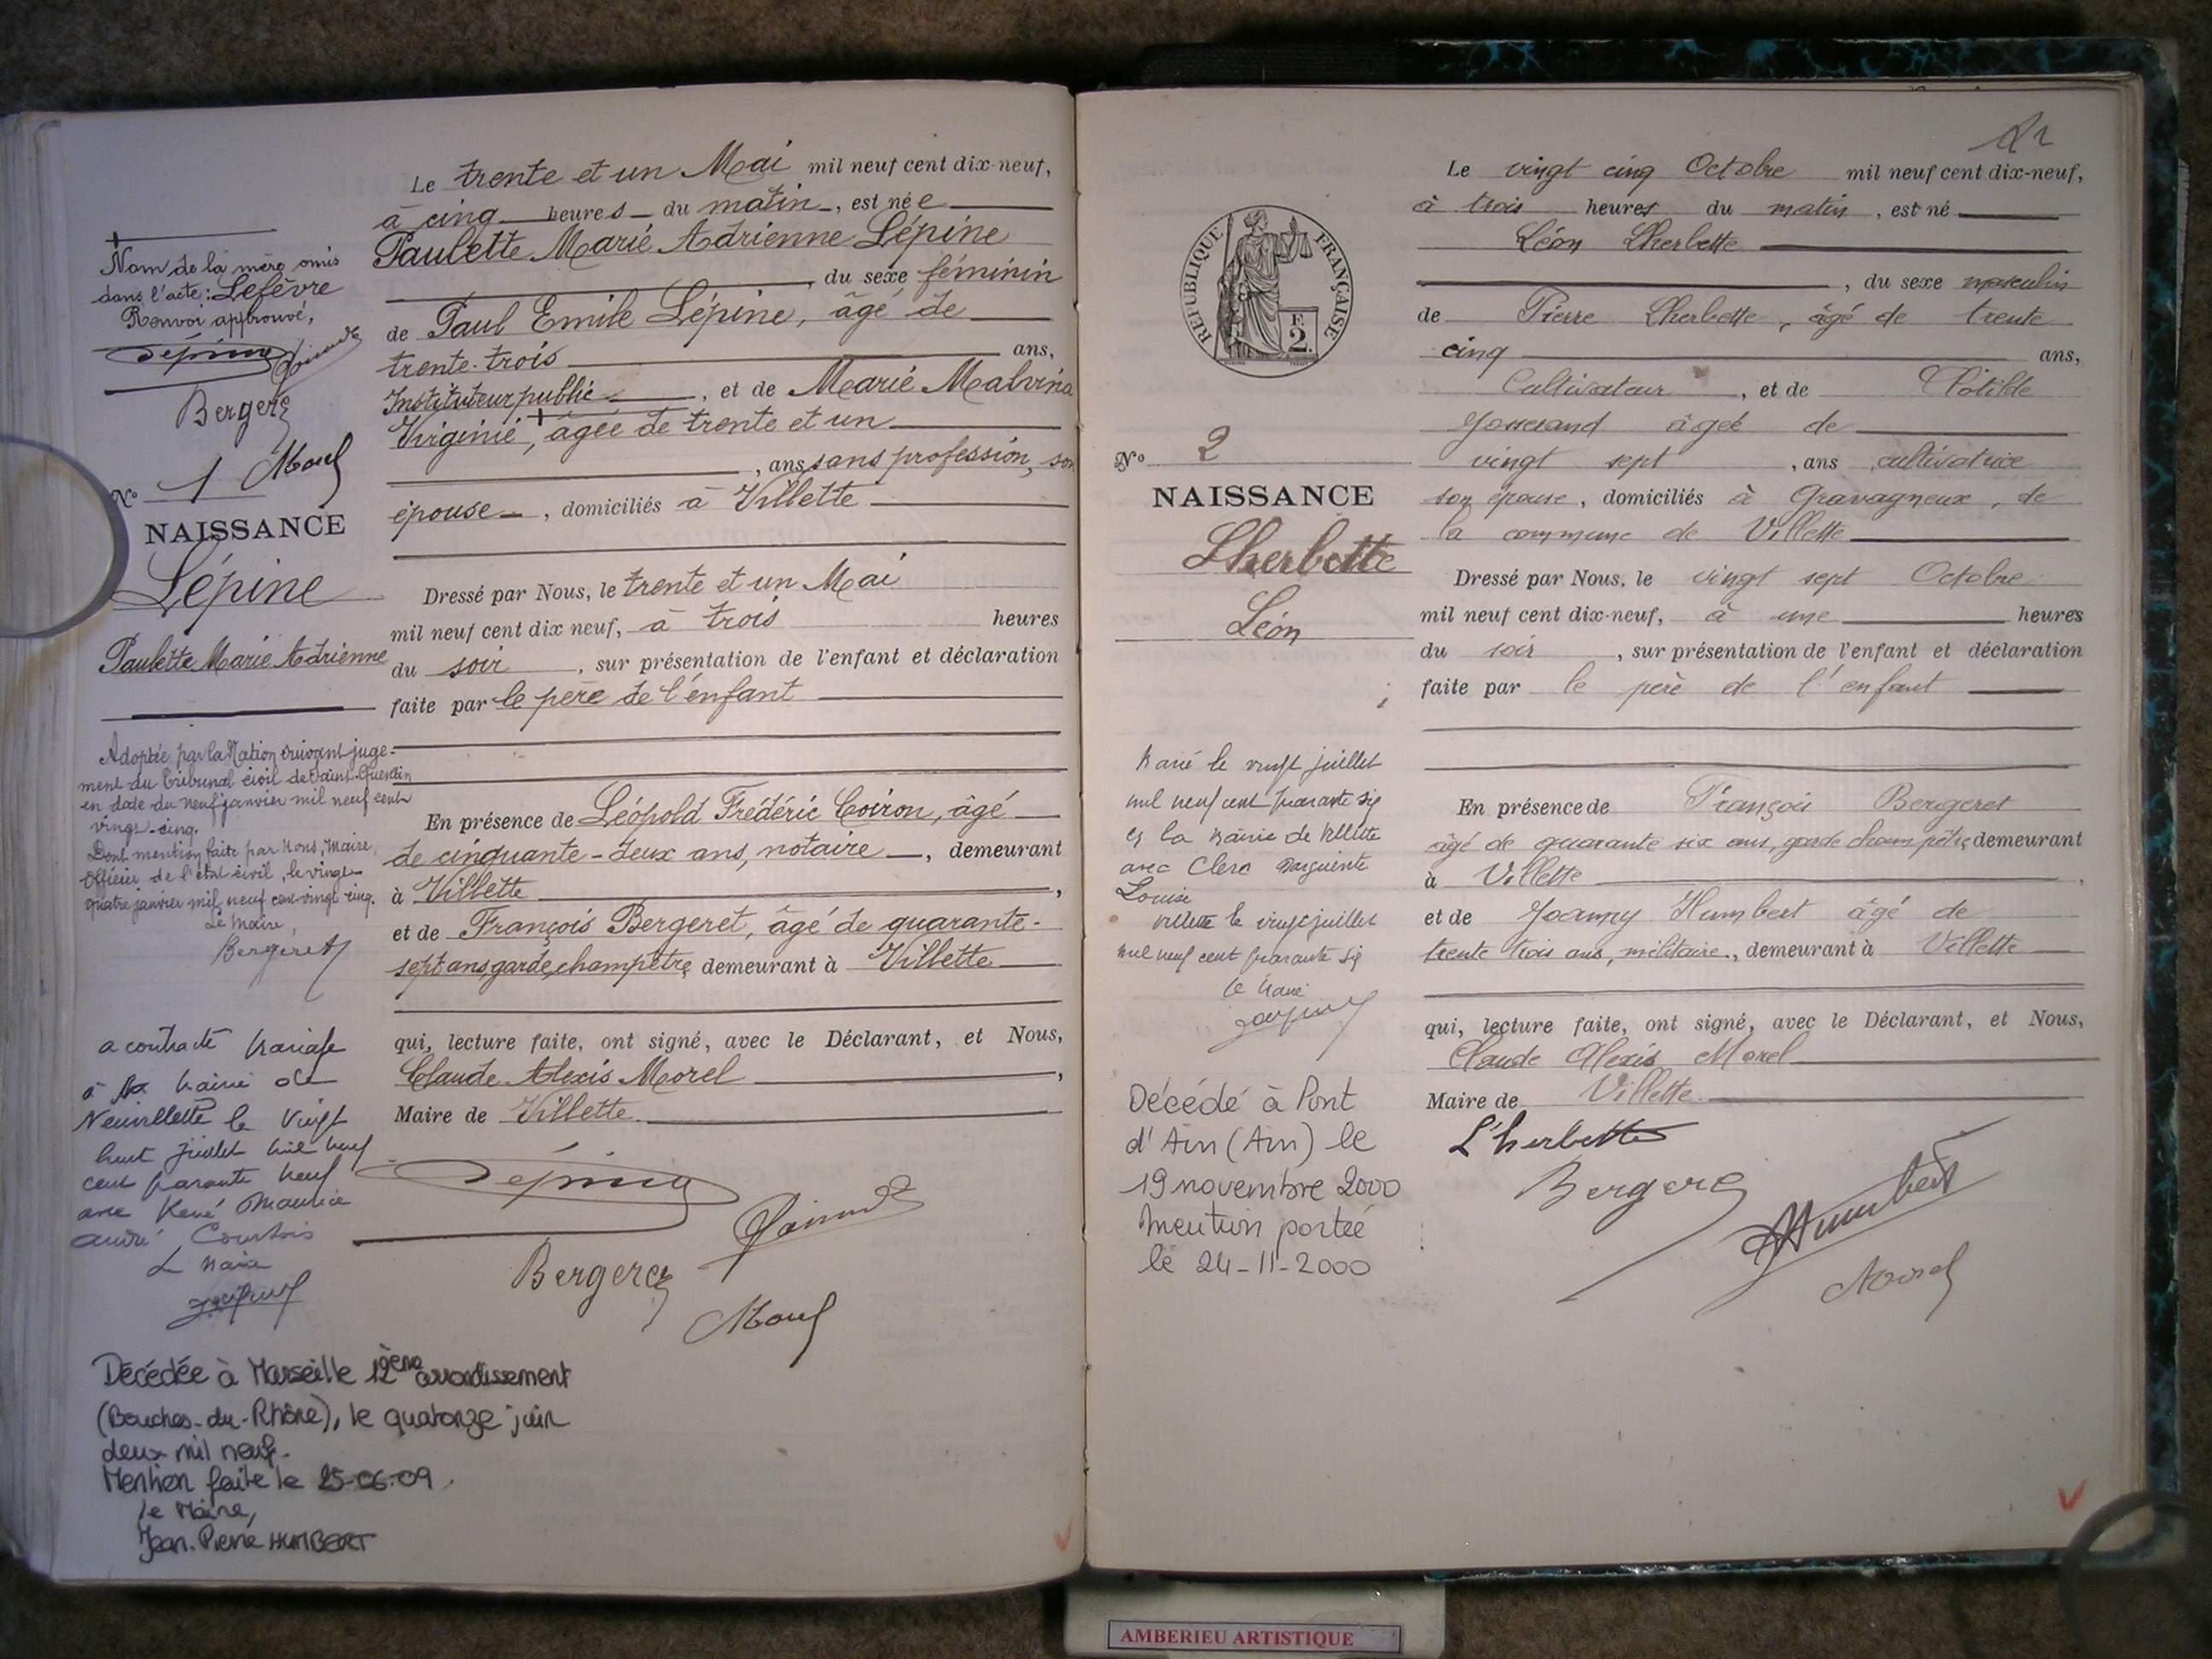 Nom de la mère omis
dans l'acte : Lefèvre
Renvoi approuvé,
Lépine
Bergeret
Morel
N° 1
NAISSANCE
Lépine
Paulette Marie Adrienne
Adoptée par la Nation suivant juge-
ment du Tribunal civil de Saint-Quentin
en date du neuf janvier mil neuf cent
vingt-cinq.
Dont mention faite par Nous, Maire,
Officier de l'état civil, le vingt
quatre janvier mil neuf cent vingt cinq.
Le Maire,
Bergeret
a contracté mariage
à la mairie de
Neuvillette le vingt
huit juillet mil neuf
cent quarante neuf
avec René Maurice
André Courtois
Le Maire
Décédée à Marseille 12ème arrondissement
(Bouches-du-Rhône), le quatorze juin
deux mil neuf.
Mention faite le 25-06-09.
le Maire,
Jean-Pierre HUMBERT
Le trente et un Mai mil neuf cent dix-neuf,
à cinq heures du matin, est née
Paulette Marie Adrienne Lépine
, du sexe féminin
de Paul Emile Lépine, âgé de
trente-trois ans,
Instituteur public, et de Marie Malvina
Virginie, + âgée de trente et un
, ans, sans profession, son
épouse, domiciliés à Villette
Dressé par Nous, le trente et un Mai
mil neuf cent dix neuf, à trois heures
du soir, sur présentation de l'enfant et déclaration
faite par le père de l'enfant
En présence de Léopold Frédéric Coiron, âgé
de cinquante-deux ans, notaire, demeurant
à Villette,
et de François Bergeret, âgé de quarante-
sept ans garde champêtre demeurant à Villette
qui, lecture faite, ont signé, avec le Déclarant, et Nous,
Claude Alexis Morel,
Maire de Villette
Lépine
Bergeret
Morel
RÉPUBLIQUE FRANÇAISE
F.
2.
N° 2
NAISSANCE
Lherbette
Léon
Marié le vingt juillet
mil neuf cent quarante six
à la mairie de Villette
avec Clerc Marguerite
Louise
Villette le vingt juillet
mil neuf cent quarante six
Le Maire
Décédé à Pont
d'Ain (Ain) le
19 novembre 2000
Mention portée
le 24-11-2000
Le vingt cinq Octobre mil neuf cent dix-neuf,
à trois heures du matin, est né
Léon Lherbette
, du sexe masculin
de Pierre Lherbette, âgé de trente
cinq ans,
Cultivateur, et de Clotilde
Josserand âgée de
vingt sept, ans cultivatrice
son épouse, domiciliés à Gravagneux, de
la commune de Villette
Dressé par Nous, le vingt sept Octobre
mil neuf cent dix-neuf, à une heures
du soir, sur présentation de l'enfant et déclaration
faite par le père de l'enfant
En présence de François Bergeret
âgé de quarante six ans, garde champêtre demeurant
à Villette,
et de Joanny Humbert âgé de
trente trois ans, militaire, demeurant à Villette
qui, lecture faite, ont signé, avec le Déclarant, et Nous,
Claude Alexis Morel
Maire de Villette
L'herbette
Bergeret
Humbert
Morel
AMBERIEU ARTISTIQUE